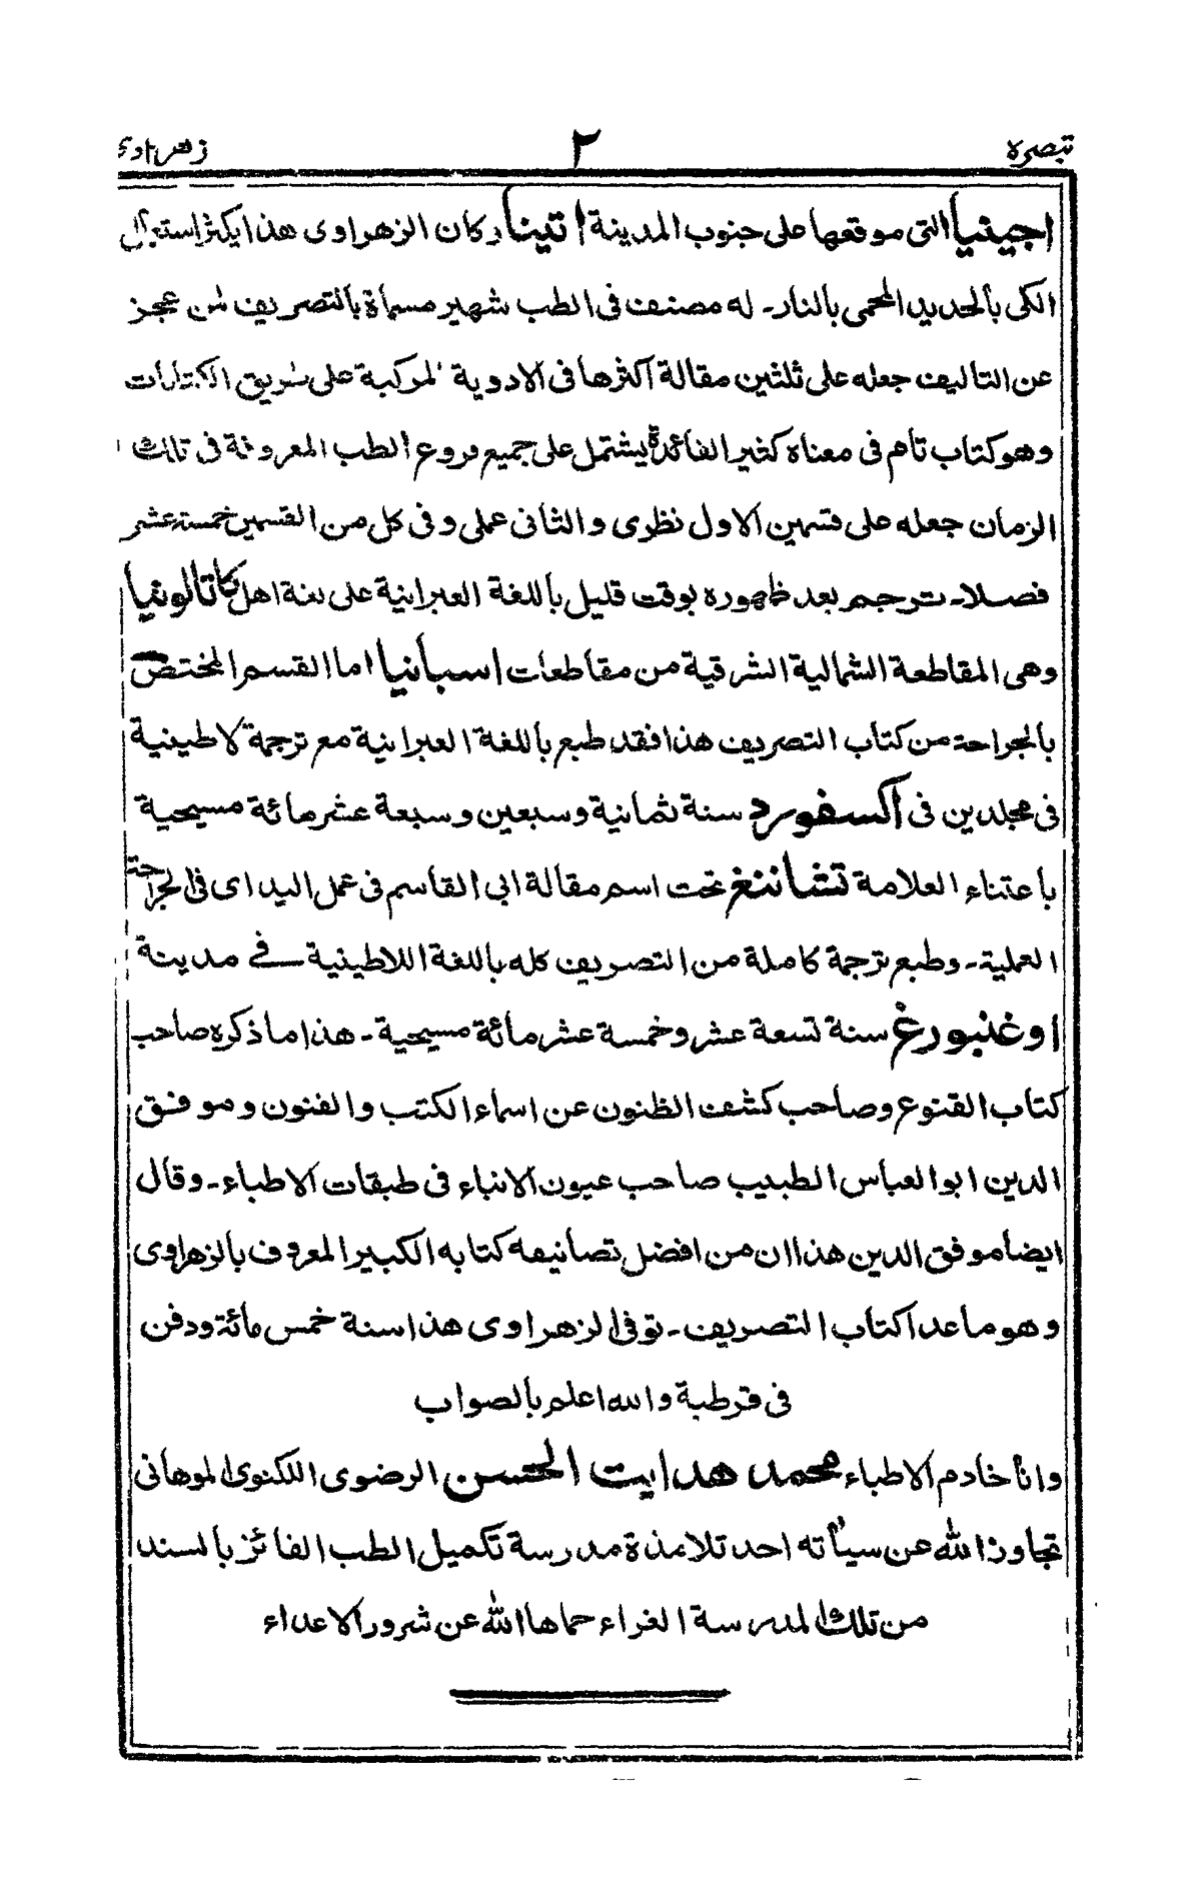 تبصرة ٢ زهراوی
اجینیا التی موقعها علی جنوب المدینة اتینا و کان الزهراوی هذا یکثر استعمال
الکی بالحدید المحمی بالنار۔ له مصنف فی الطب شهیر مسماة بالتصریف لمن عجز
عن التالیف جعله علی ثلثین مقالة اکثرها فی الادویة المرکبة علی طریق الکتابات
وهو کتاب تام فی معناه کثیر الفائدة یشتمل علی جمیع فروع الطب المعروفة فی تلک
الزمان جعله علی قسمین الاول نظری والثانی عملی وفی کل من القسمین خمسة عشر
فصلا۔ ترجم بعد ظهوره بوقت قلیل باللغة العبرانیة علی لغة اهل کاتالونیا
وهی المقاطعة الشمالیة الشرقیة من مقاطعات اسبانیا اما القسم المختص
بالجراحة من کتاب التصریف هذا فقد طبع باللغة العبرانیة مع ترجمة لاطینیة
فی مجلدین فی اکسفورد سنة ثمانیة وسبعین وسبعة عشر مائة مسیحیة
باعتناء العلامة تشاننغ تحت اسم مقالة ابی القاسم فی عمل الید ای فی الجراحة
العملیة۔ وطبع ترجمة کاملة من التصریف کله باللغة اللاطینیة فے مدینة
اوغنبورغ سنة تسعة عشر وخمسة عشر مائة مسیحیة۔ هذا ما ذکره صاحب
کتاب القنوع وصاحب کشف الظنون عن اسماء الکتب والفنون وموفق
الدین ابو العباس الطبیب صاحب عیون الانباء فی طبقات الاطباء۔ وقال
ایضا موفق الدین هذا ان من افضل تصانیفه کتابه الکبیر المعروف بالزهراوی
وهو ما عدا کتاب التصریف۔ توفی الزهراوی هذا سنة خمس مائة ودفن
فی قرطبة والله اعلم بالصواب
وانا خادم الاطباء محمد هدایت الحسن الرضوی اللکنوی الموهانی
تجاوز الله عن سیأته احد تلامذة مدرسة تکمیل الطب الفائز بالسند
من تلک المدرسة الغراء حماها الله عن شرور الاعداء